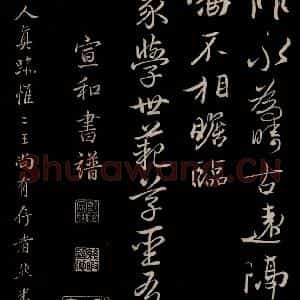 永為時古遠隔
不相矚臨
家學世範草聖有
宣和書譜
人真蹟惟二王尚有存者然
Shufawang.CN